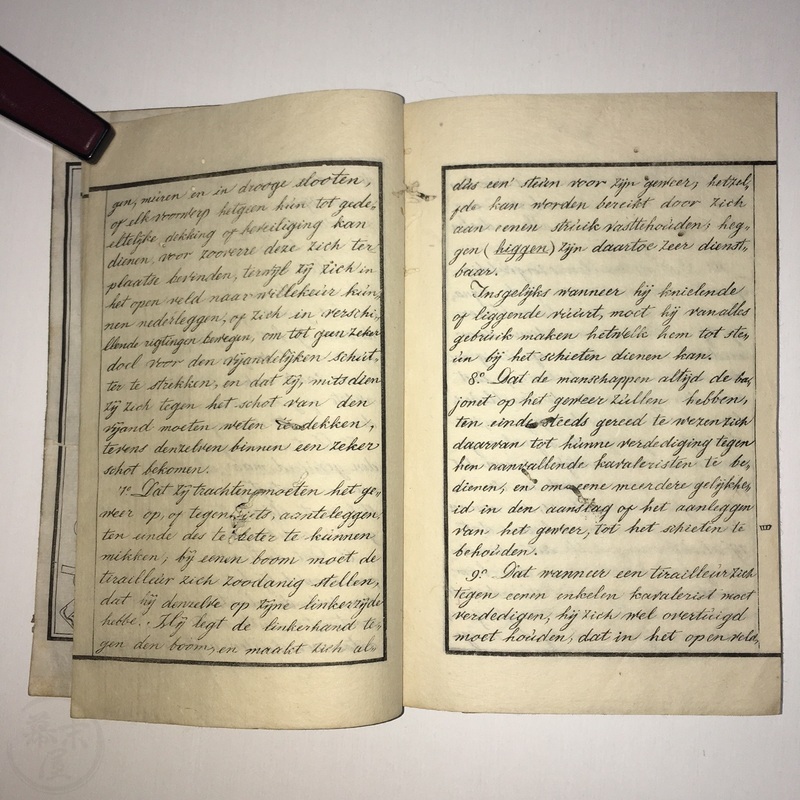 gen, muren en in drooge slooten,
of elk voorwerp hetgeen hun tot gede-
eltelijke dekking of beveiliging kan
dienen, voor zooverre deze zich ter
plaatse bevinden, terwijl zij zich in
het open veld naar willekeur kun-
nen nederleggen, of zich in verschi-
llende rigtingen bewegen, om tot geen zeker
doel voor den vijandelijken schut-
ter te strekken, en dat zij, mitsdien
zij zich tegen het schot van den
vijand moeten weten te dekken,
tevens denzelven binnen een zeker
schot bekomen.
7° Dat zij trachten moeten het ge-
weer op, of tegen iets, aanteleggen
ten einde des te beter te kunnen
mikken; bij eenen boom moet de
tirailleur zich zoodanig stellen,
dat hij denzelve op zijne linkerzijde
hebbe. Hij legt de linkerhand te-
gen den boom, en maakt zich al-
dus een' steun voor zijn geweer; hetzel-
fde kan worden bereikt door zich
aan eenen struik vasttehouden; heg-
gen (higgen) zijn daartoe zeer dienst-
baar.
Insgelijks wanneer hij knielende
of liggende vuurt, moet hij van alles
gebruik maken hetwelk hem tot ste-
un bij het schieten dienen kan.
8° Dat de manschappen altijd de ba-
jonet op het geweer zullen hebben,
ten einde steeds gereed te wezen zich
daarvan tot hunne verdediging tegen
hen aanvallende kavaleristen te be-
dienen, en om eene meerdere gelijkhe-
id in den aanslag of het aanleggen
van het geweer, tot het schieten te
behouden.
9° Dat wanneer een tirailleur zich
tegen eenen enkelen kavalerist moet
verdedigen, hij zich wel overtuigd
moet houden, dat in het open veld,